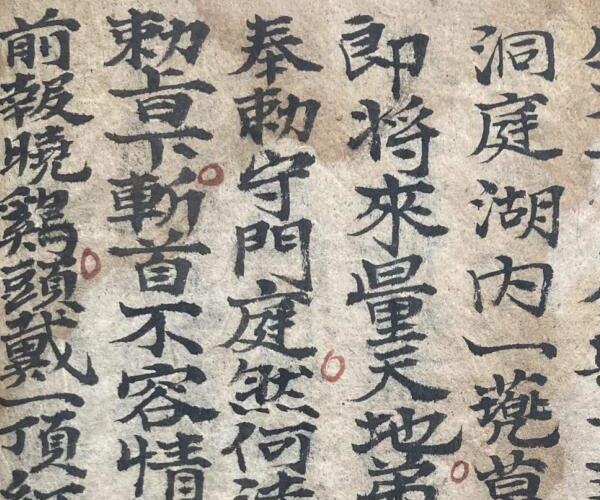 洞庭湖内一蔸草
即将來量天地
奉勅守門庭然何
勅旨下斬首不容情
前報曉鷄頭戴一頂紅